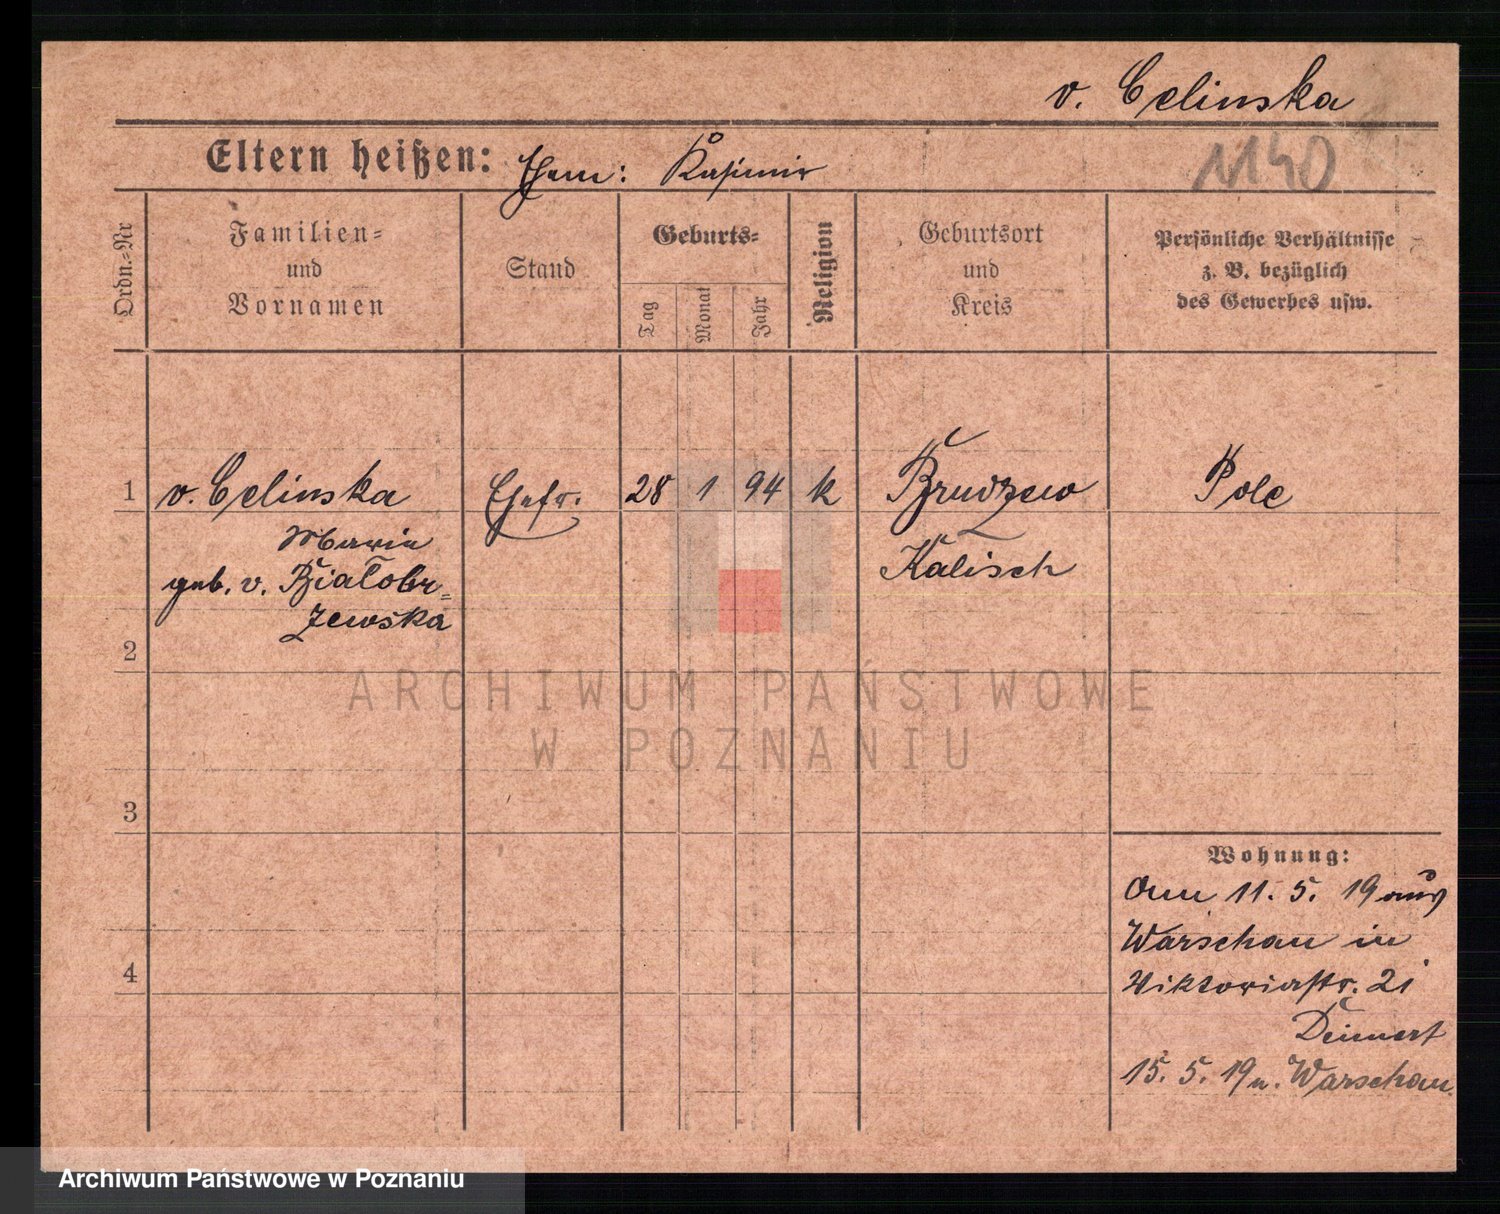 v. Celinska
1140
Eltern heißen: Ehem: Kasimir
Ordn.-Nr
Familien-
und
Vornamen
Stand
Geburts-
Tag
Monat
Jahr
Religion
Geburtsort
und
Kreis
Persönliche Verhältnisse
z. B. bezüglich
des Gewerbes usw.
1 v. Celinska Ehefr. 28 1 94 k Brudzew Pole
Marie
Kalisch
geb. v. Białobr=
zewska
2
ARCHIWUM PAŃSTWOWE
W POZNANIU
3
Wohnung:
Am 11. 5. 19 aus
Warschau in
4
Viktoriastr. 21
15. 5. 19 n. Warschau
Archiwum Państwowe w Poznaniu